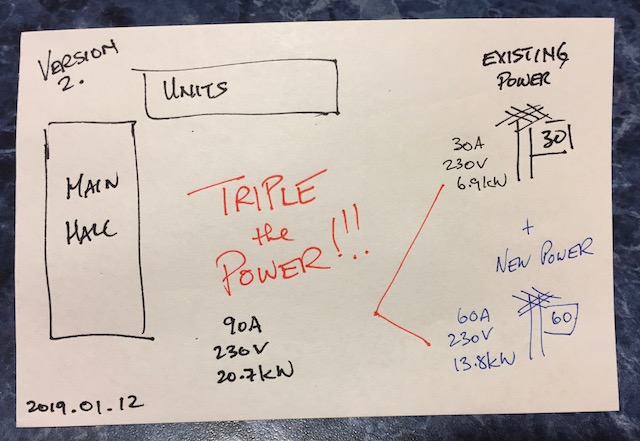 VERSION
2.
UNITS
MAIN
HALL
TRIPLE
the
POWER!!!
90A
230V
20.7kW
2019.01.12
EXISTING
POWER
30A
230V
6.9kW
30
+
NEW POWER
60A
230V
13.8kW
60